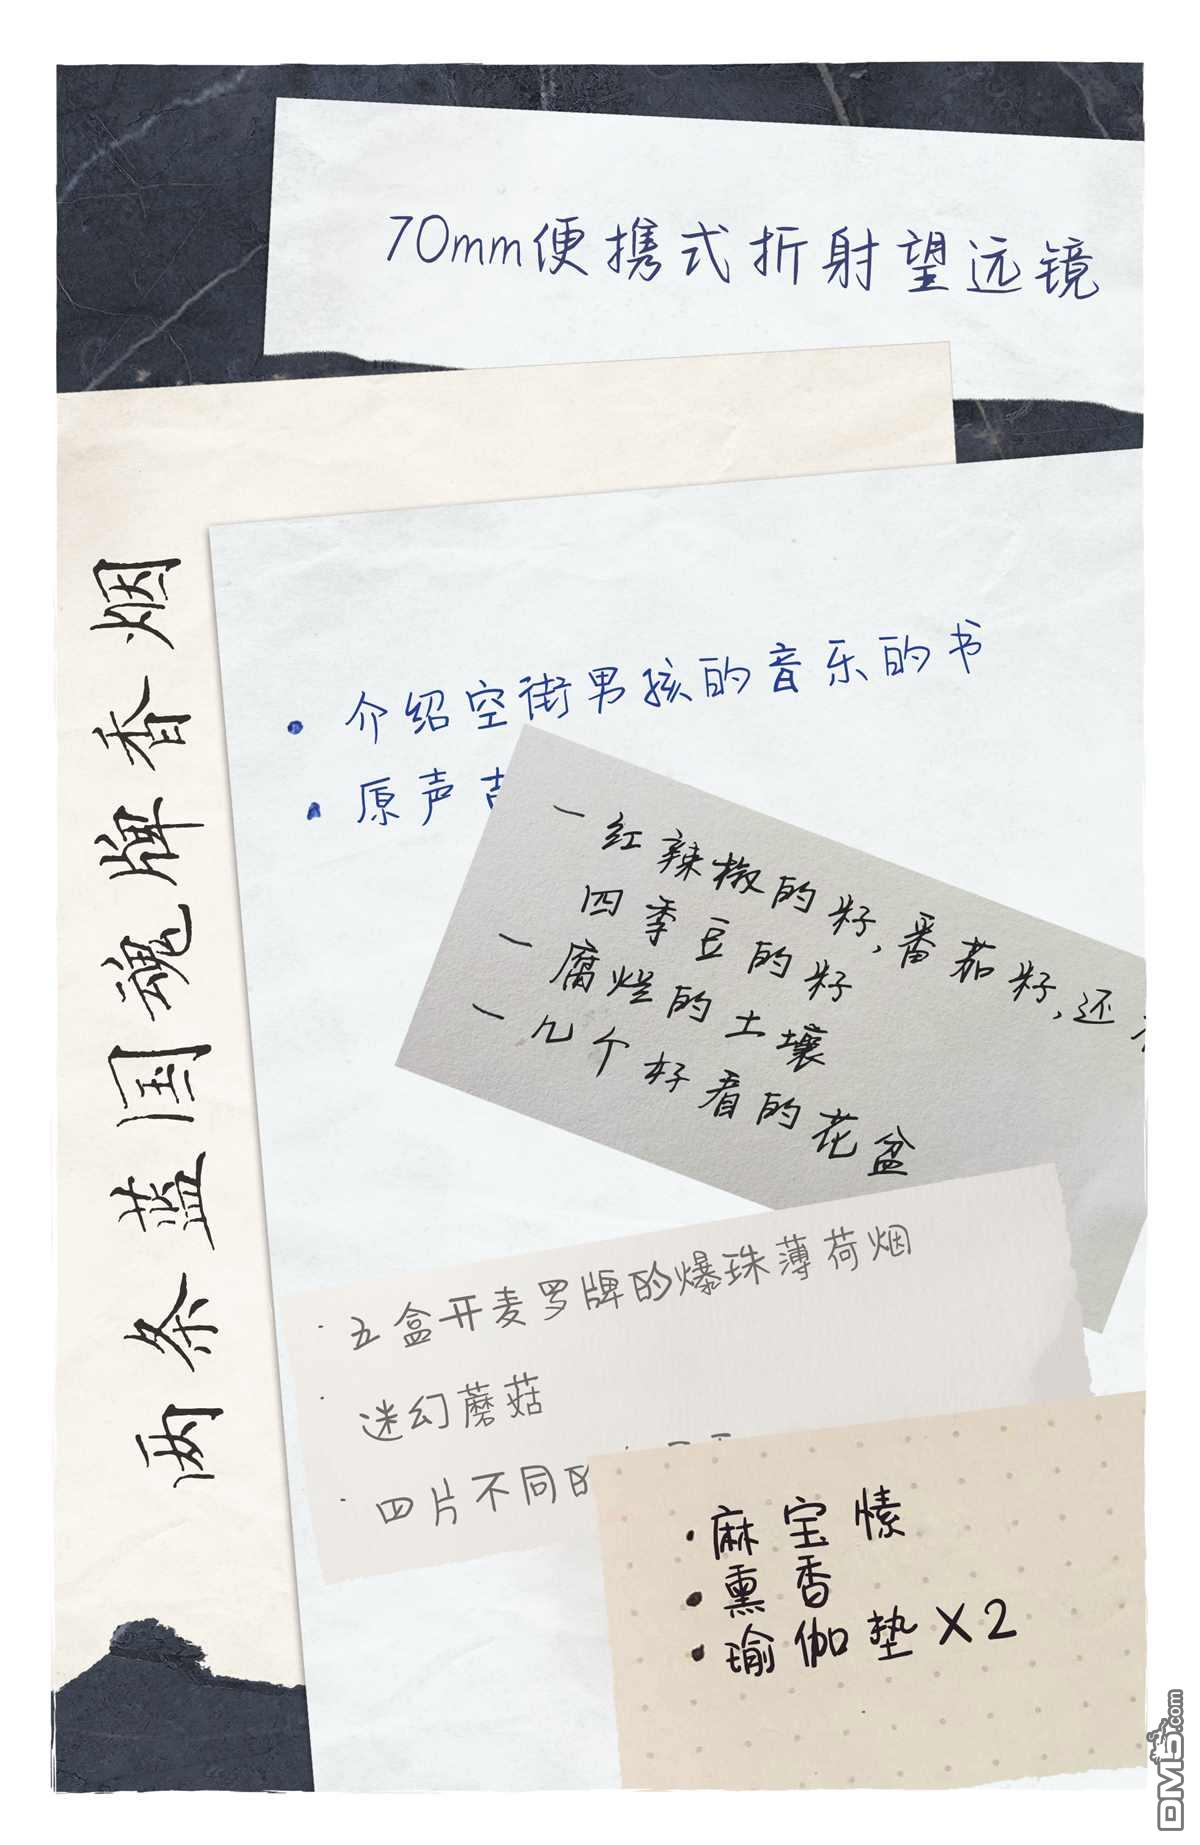 70mm便携式折射望远镜
两条蓝国魂牌香烟
• 介绍空街男孩的音乐的书
• 原声
一红辣椒的籽,番茄籽,还
四季豆的籽
一腐烂的土壤
一几个好看的花盆
· 五盒开麦罗牌的爆珠薄荷烟
· 迷幻蘑菇
· 四片不同
• 麻宝愫
• 熏香
• 瑜伽垫X2
DM5.com